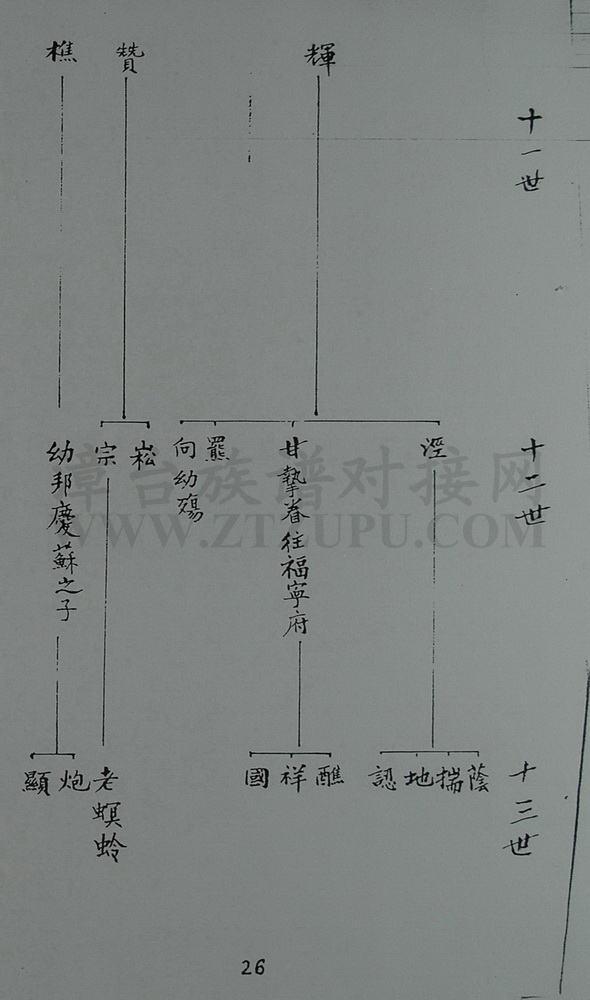 十一世
輝
贊
樵
十二世
涇
甘摯眷往福寧府
羆
向幼殤
崧
宗
幼邦慶蘇之子
十三世
蔭
揣
地
認
醮
祥
國
老螟蛉
炮
顯
章台族谱对接网
WWW.ZTZUPU.COM
26